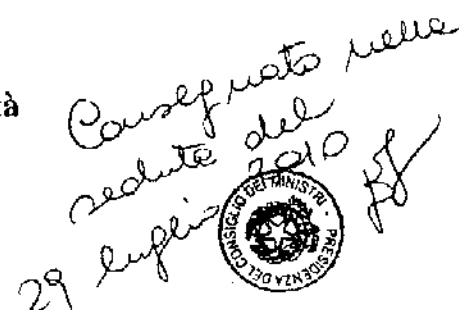 tà
Consegnato nella
seduta del
29 luglio 2010
PRESIDENZA DEL CONSIGLIO DEI MINISTRI